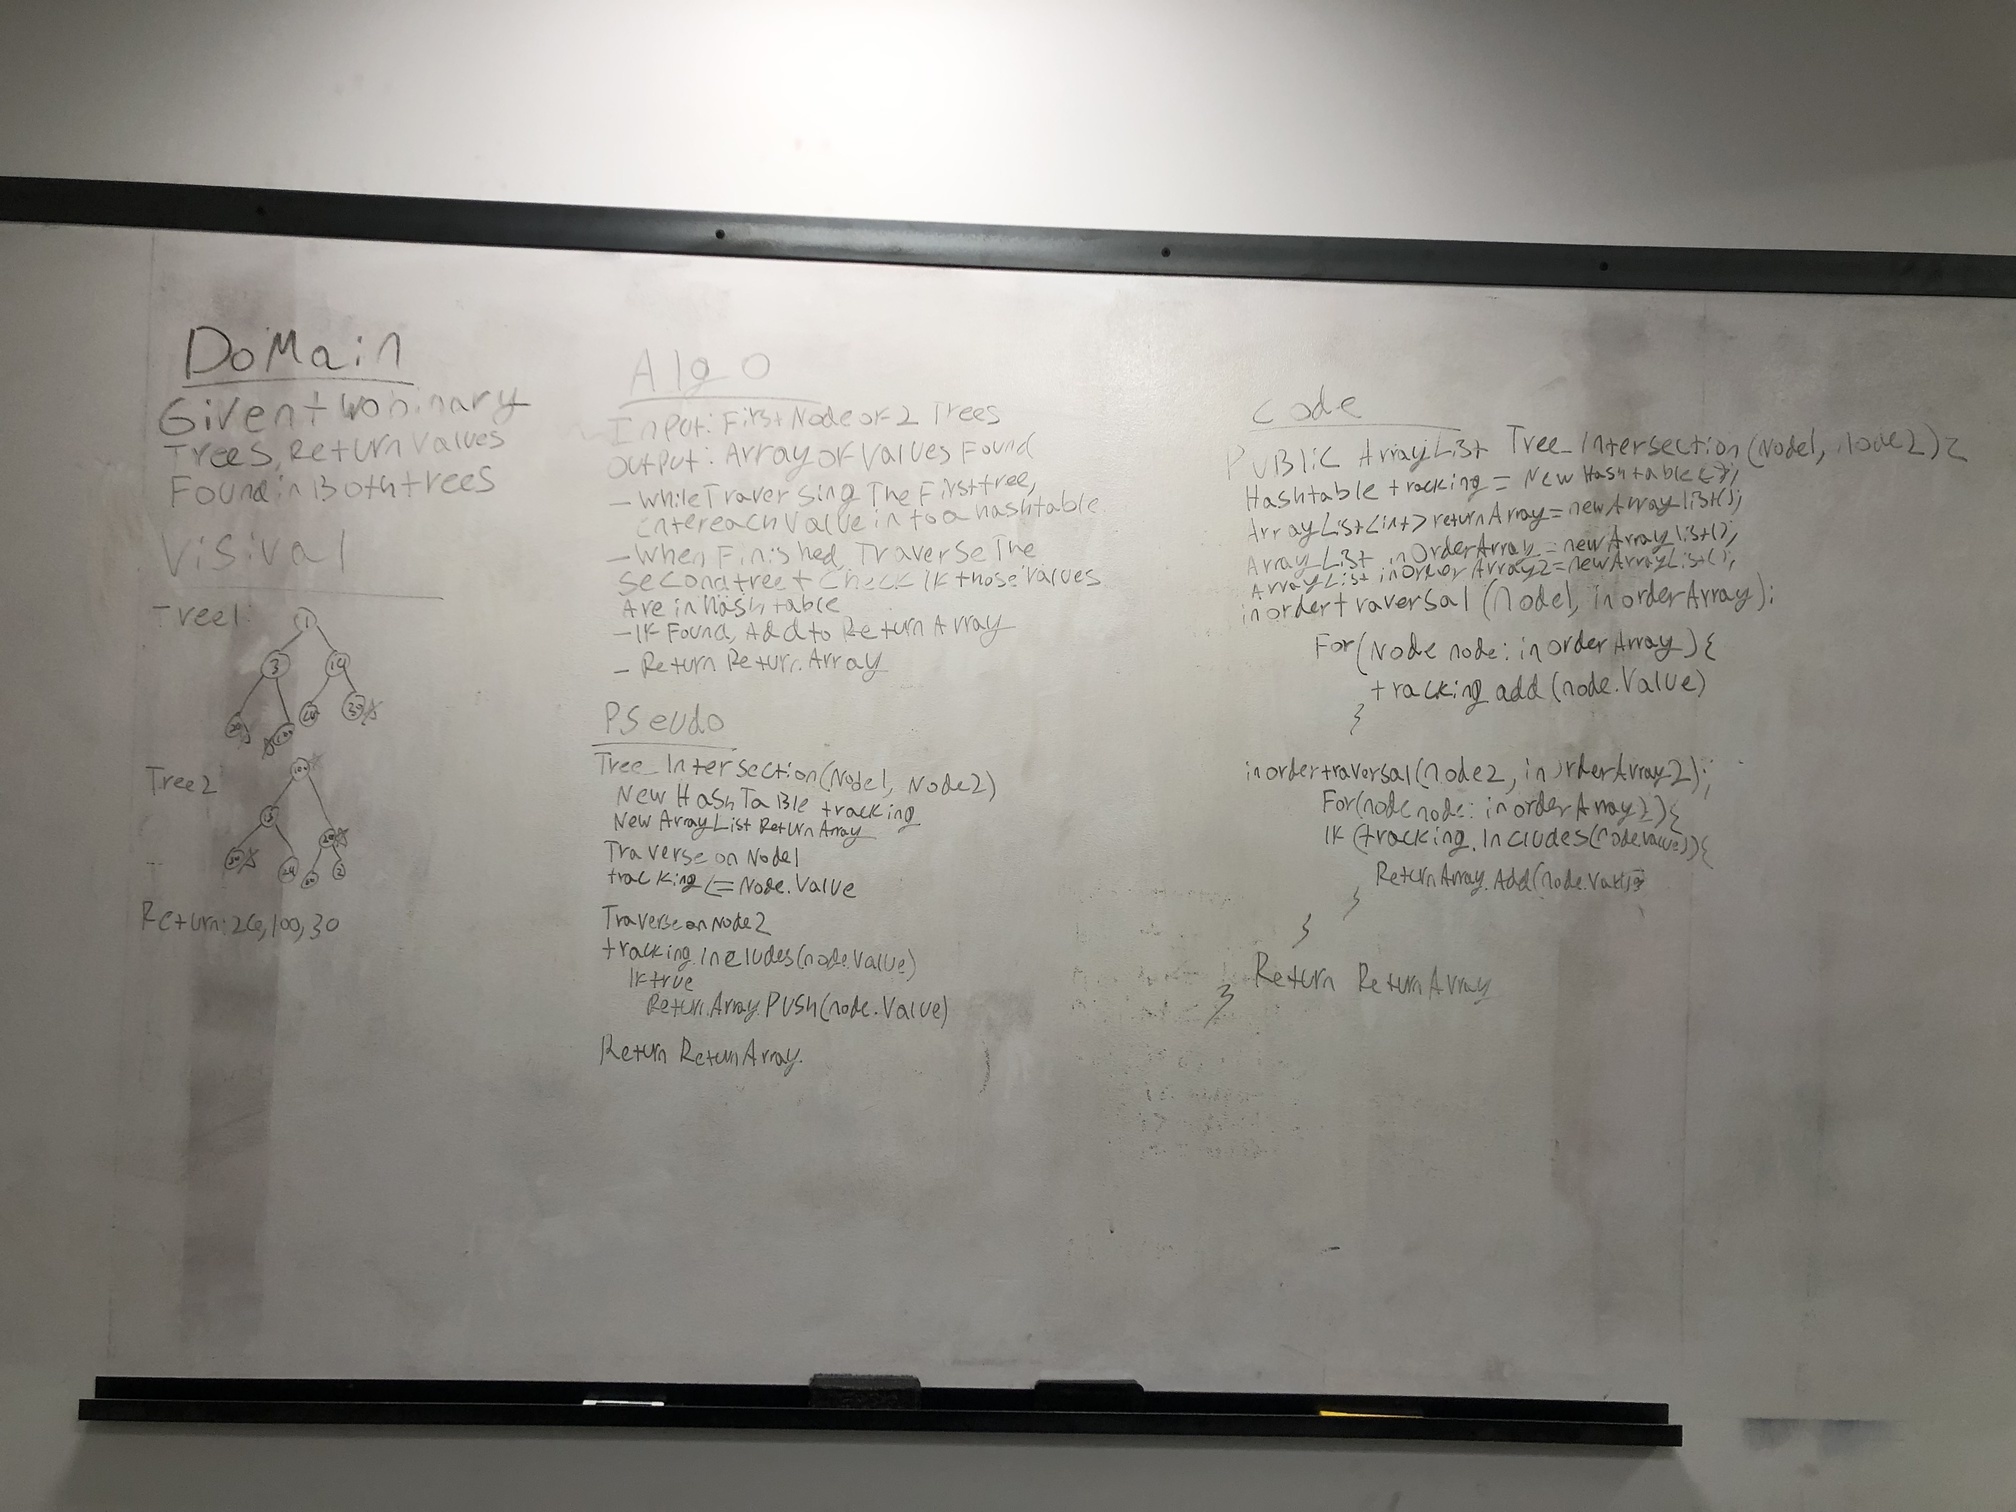 DoMain
Given two binary
Trees, Return Values
Found in Both trees
Visival
Tree1:
1
3
Tree2
Return: 26, 100, 30
Algo
InPut: First Node of 2 Trees
OutPut: Array of Values Found
- While Traversing The First tree,
enter each Value in to a hashtable
- When Finished, Traverse The
Second tree + Check if those Values
Are in Hash table
- If Found, Add to Return Array
- Return Return Array
PSeudo
Tree_Intersection(Node1, Node2)
New HashTaBle tracking
New ArrayList Return Array
Traverse on Node1
tracking <= Node.Value
Traverse on Node2
tracking.includes(node.value)
If true
Return.Array.PUSh(node.Value)
Return ReturnArray.
Code
PUBLic ArrayList Tree_Intersection(Node1, Node2){
Hashtable tracking = New Hashtable<>;
ArrayList<int> returnArray = newArraylist();
ArrayList inOrderArray = newArraylist();
ArrayList inOrder Array2 = newArrayList();
inordertraversal(Node1, inorderArray);
For(Node node: inorderArray){
tracking.add(node.Value)
}
inordertraversal(node2, inOrderArray2);
For(node node: inorderArray2){
If (tracking.includes(node.value)){
ReturnArray.Add(node.Value);
}
}
Return ReturnArray
}